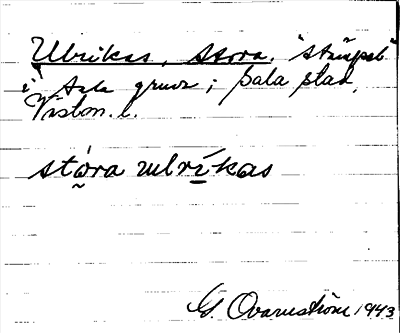 Ulrikas, Stora. "stämpel"
i Sala gruva i Sala stad,
Västm. l.
stóra ulríkas
G. Ovarnström 1943